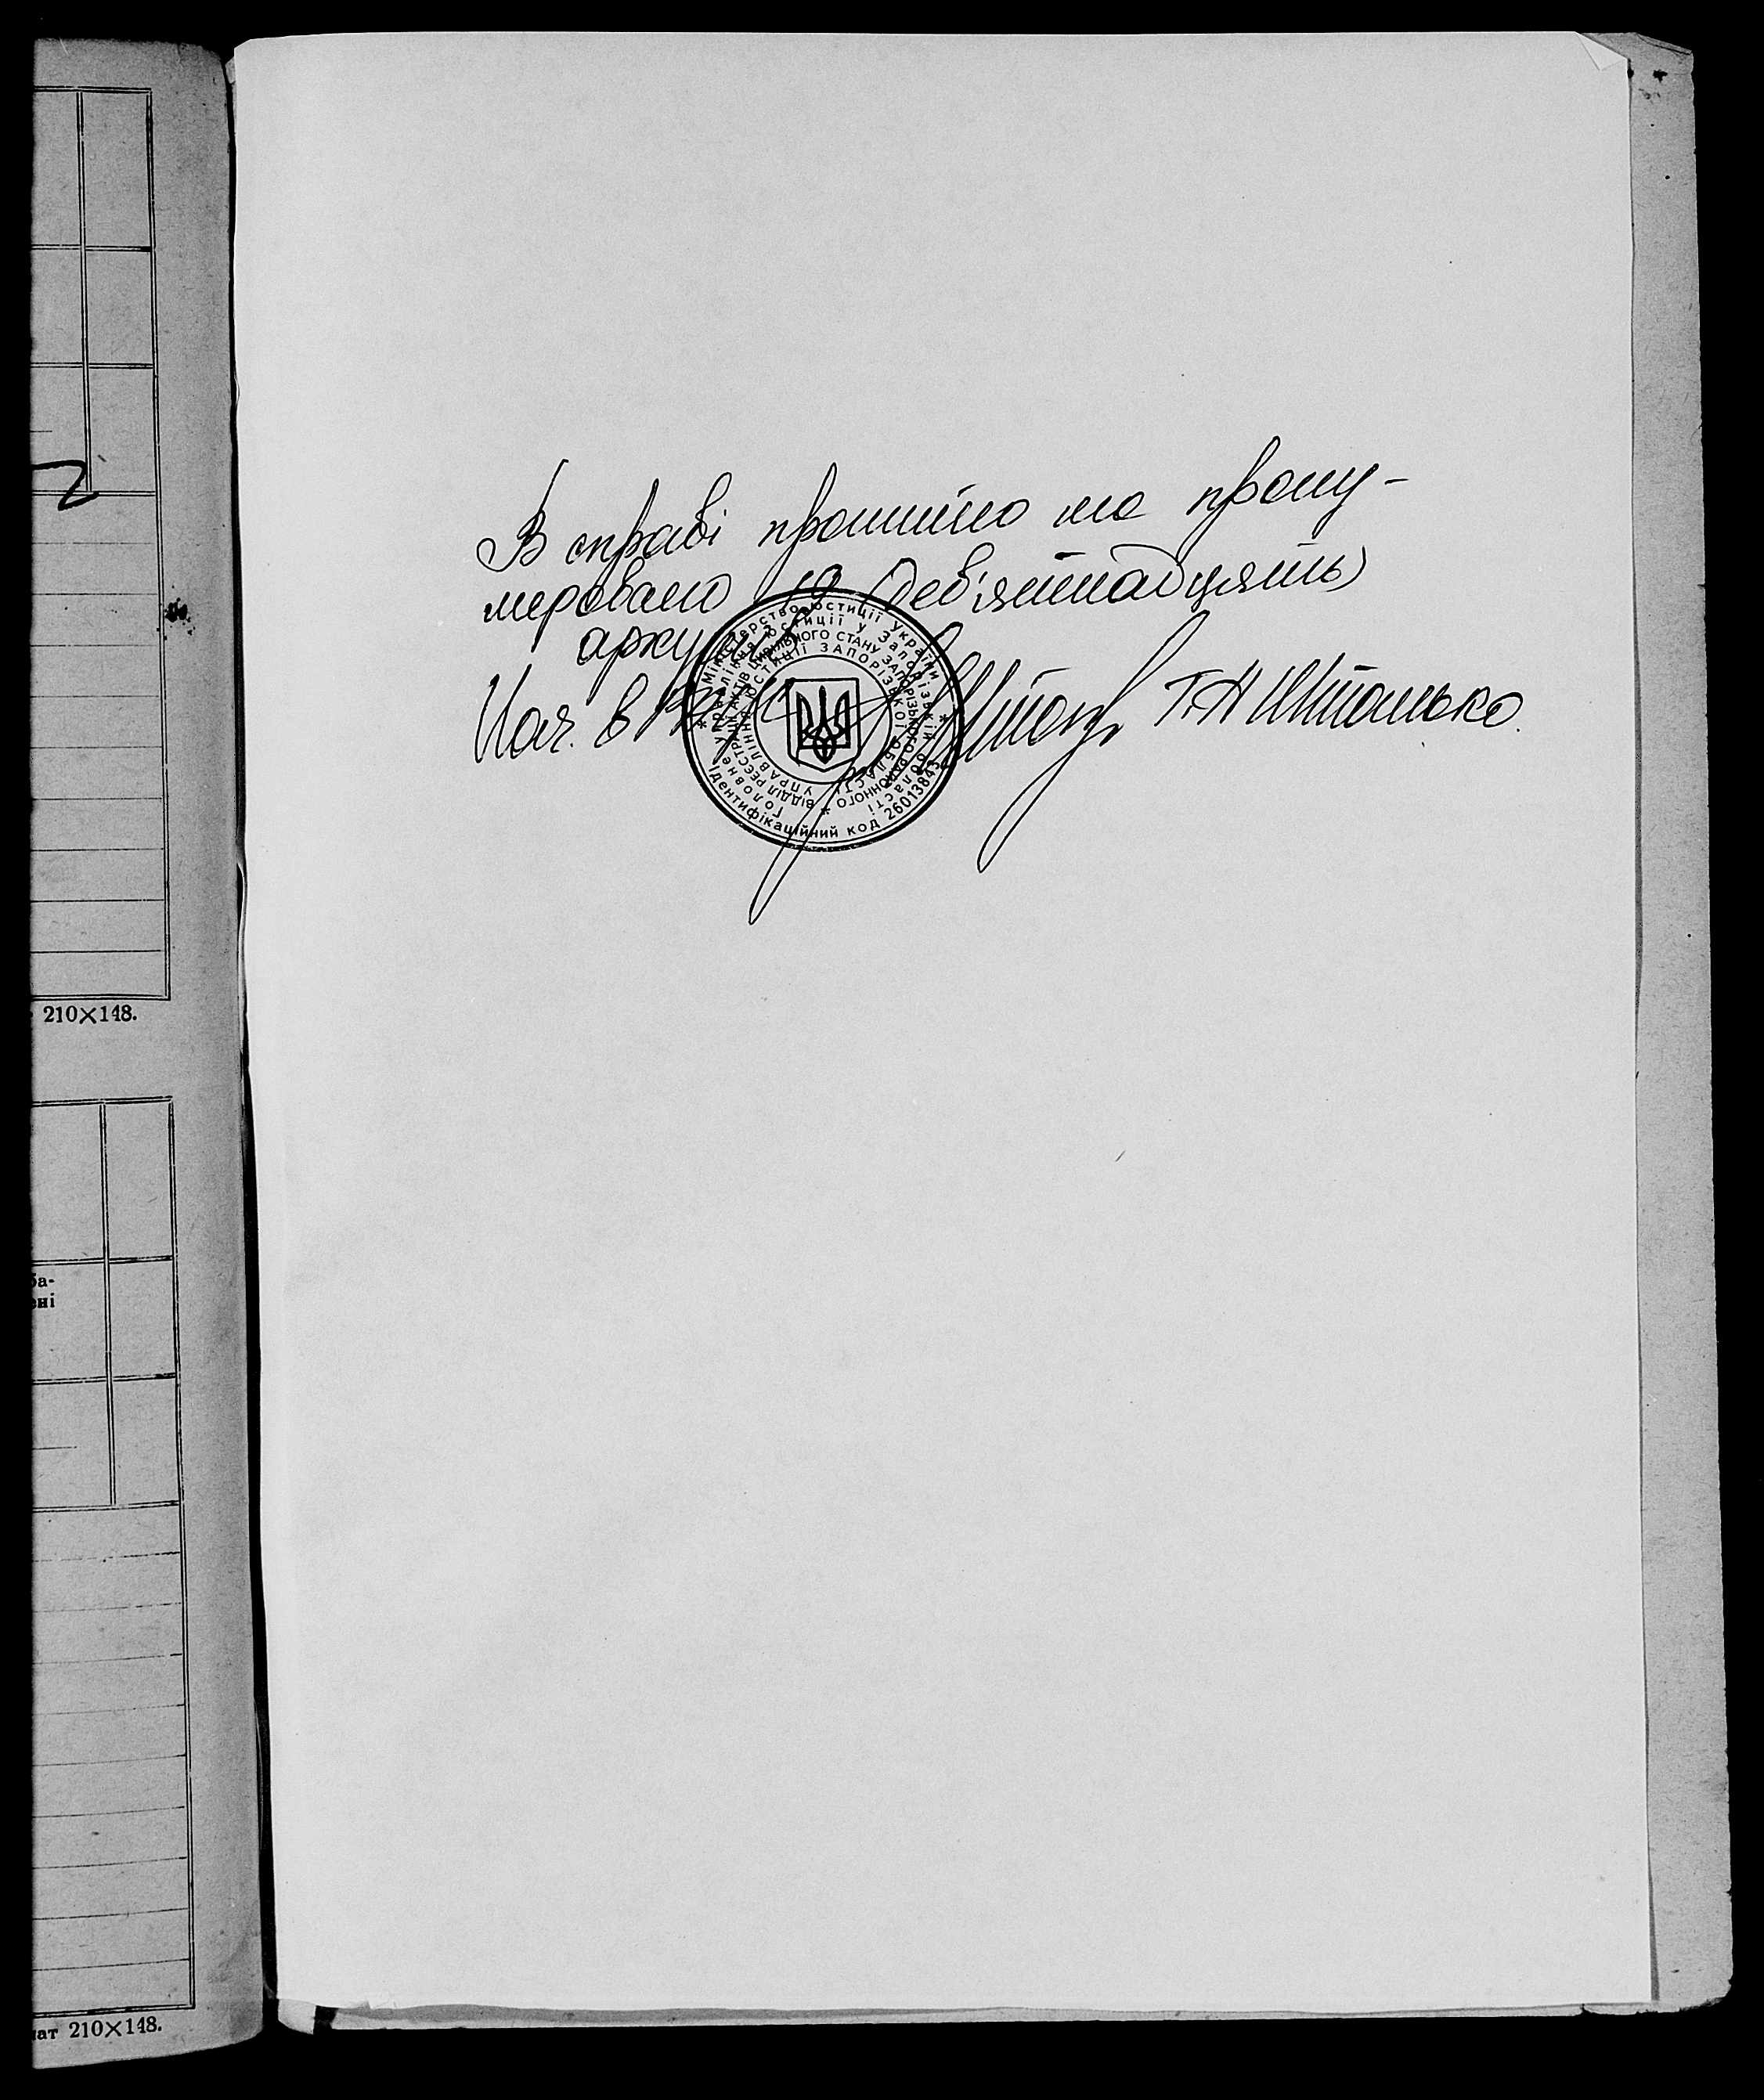 210×148.
ба-
ені
мат 210×148.
В справі прошито та прону-
меровано 19 (дев'ятнадцять)
аркушів
Нач. в
Т.Н Штанько
* Міністерство юстиції України *
Головне управління юстиції у Запорізькій області
ВІДДІЛ РЕЄСТРАЦІЇ АКТІВ ЦИВІЛЬНОГО СТАНУ ЗАПОРІЗЬКОГО РАЙОННОГО *
УПРАВЛІННЯ ЮСТИЦІЇ ЗАПОРІЗЬКОЇ ОБЛАСТІ
Ідентифікаційний код 26013843